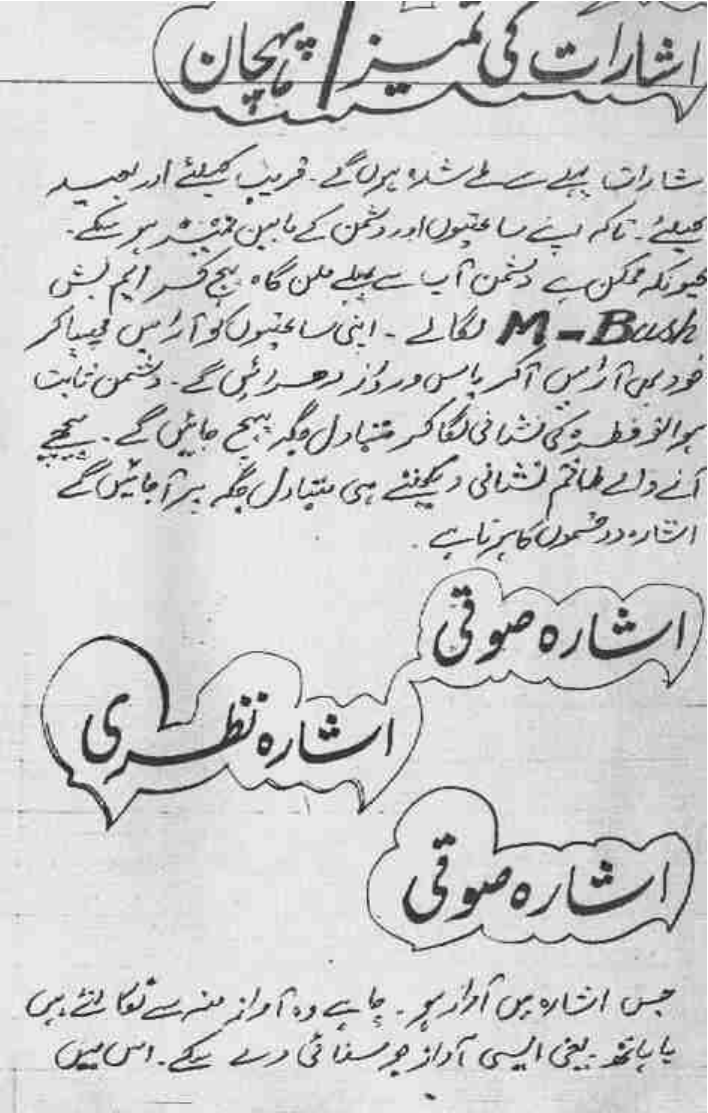 اشارات کی تمیز / پہچان
شارات پہلے سے طے شدہ ہوں گے۔ قریب کیلئے اور بعید
کیلئے۔ تاکہ اپنے ساتھیوں اور دشمن کے مابین تمیز ہو سکے۔
کیونکہ ممکن ہے دشمن آپ سے پہلے ملن گاہ پہنچ کر ایم بش
M-Bush لگالے۔ اپنی ساتھیوں کو آڑ میں چھپا کر
خود بھی آڑ میں آکر پاس ورڈ دھرائیں گے۔ دشمن ثابت
ہوا تو خطرہ کی نشانی لگا کر متبادل جگہ پہنچ جائیں گے۔ پیچھے
آنے والے طاقم نشانی دیکھتے ہی متبادل جگہ پر آجائیں گے
اشارہ دو قسموں کا ہوتا ہے۔
اشارہ صوتی
اشارہ نظری
اشارہ صوتی
جس اشارہ میں آواز ہو۔ چاہے وہ آواز منہ سے نکالتے ہیں
یا ہاتھ۔ یعنی ایسی آواز جو سنائی دے سکے۔ اس میں